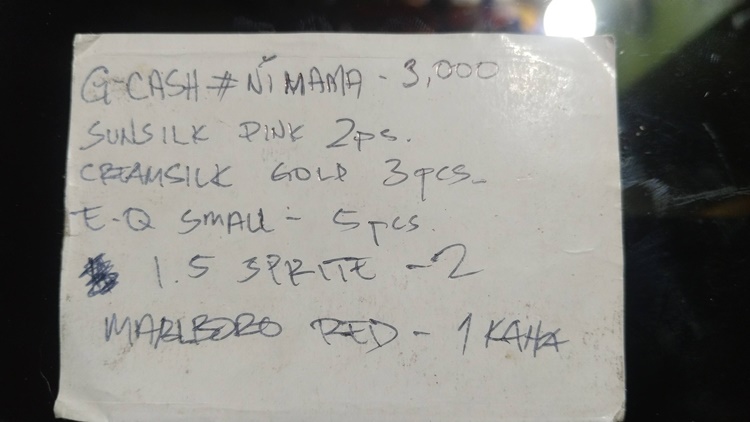 G-CASH # NI MAMA - 3,000
SUNSILK PINK 2ps.
CREAMSILK GOLD 3pcs.
E.Q SMALL - 5pcs.
1.5 SPRITE - 2
MARLBORO RED - 1 KAHA